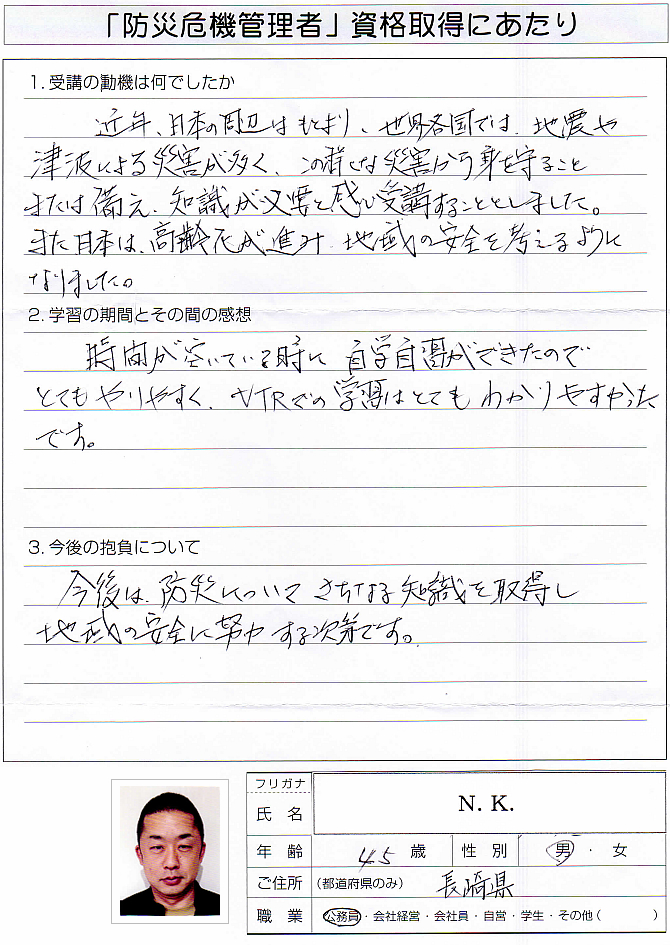 「防災危機管理者」資格取得にあたり
1. 受講の動機は何でしたか
近年、日本の周辺はもとより、世界各国では、地震や
津波による災害が多く、この様な災害から身を守ること
または備え、知識が必要と感じ受講することとしました。
また日本は、高齢化が進み、地域の安全を考えるように
なりました。
2. 学習の期間とその間の感想
時間が空いている時に自学自習ができたので
とてもやりやすく、VTRでの学習はとてもわかりやすかった
です。
3. 今後の抱負について
今後は、防災についてさらなる知識を取得し
地域の安全に努力する次第です。
フリガナ
氏 名 N. K.
年 齢 45 歳 性 別 男 ・ 女
ご住所 (都道府県のみ) 長崎県
職 業 公務員・会社経営・会社員・自営・学生・その他 ( )